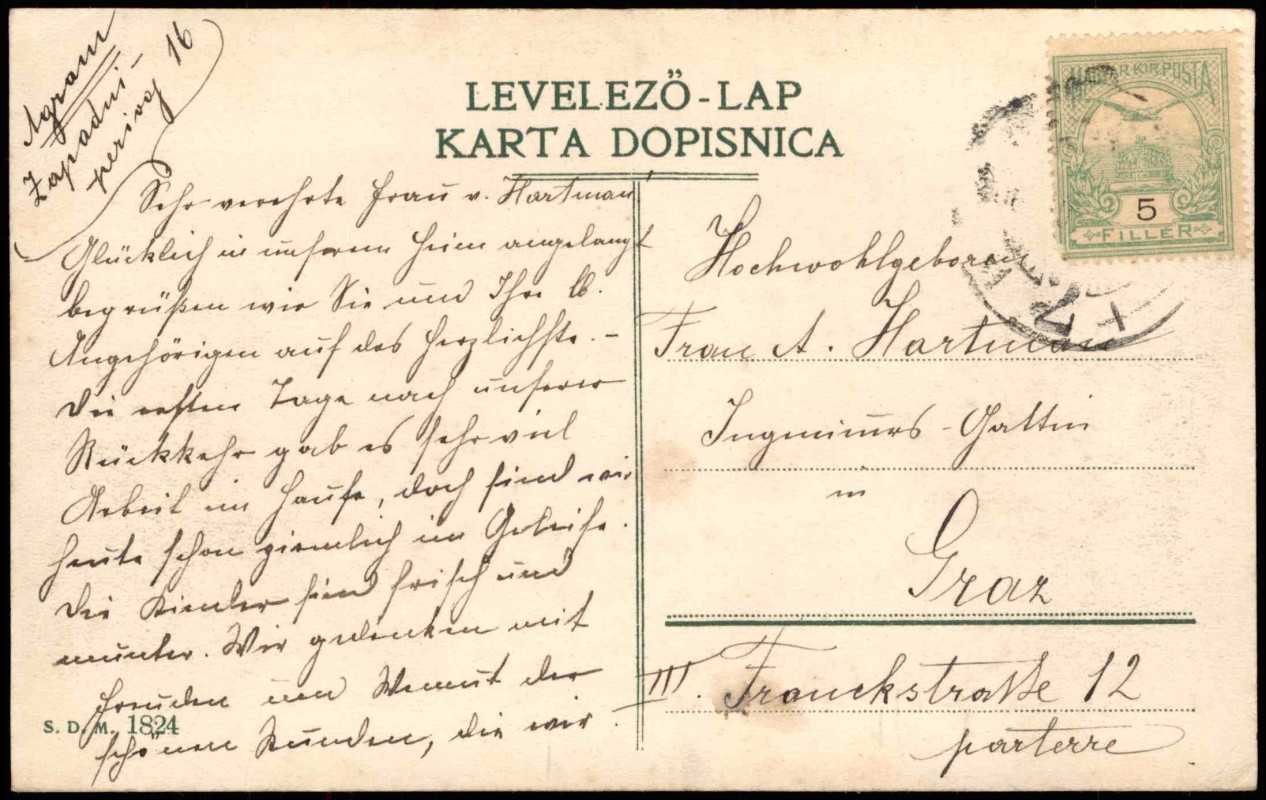 Agram
Zapadni-
perivoj 16
LEVELEZŐ-LAP
KARTA DOPISNICA
MAGYAR KIR. POSTA
5
FILLÉR
Sehr verehrte Frau v. Hartman!
Glücklich in unserem Heim angelangt
begrüßen wir Sie und Ihre lb.
Angehörigen auf das Herzlichste. -
Die ersten Tage nach unserer
Rückkehr gab es sehr viel
Arbeit im Hause, doch sind wir
heute schon ziemlich im Geleise.
Die Kinder sind frisch und
munter. Wir gedenken mit
Freuden und Wemut der
schönen Stunden, die wir
S. D. M. 1824
Hochwohlgeboren
Frau A. Hartman
Ingenieurs-Gattin
in
Graz
III. Franckstraße 12
parterre